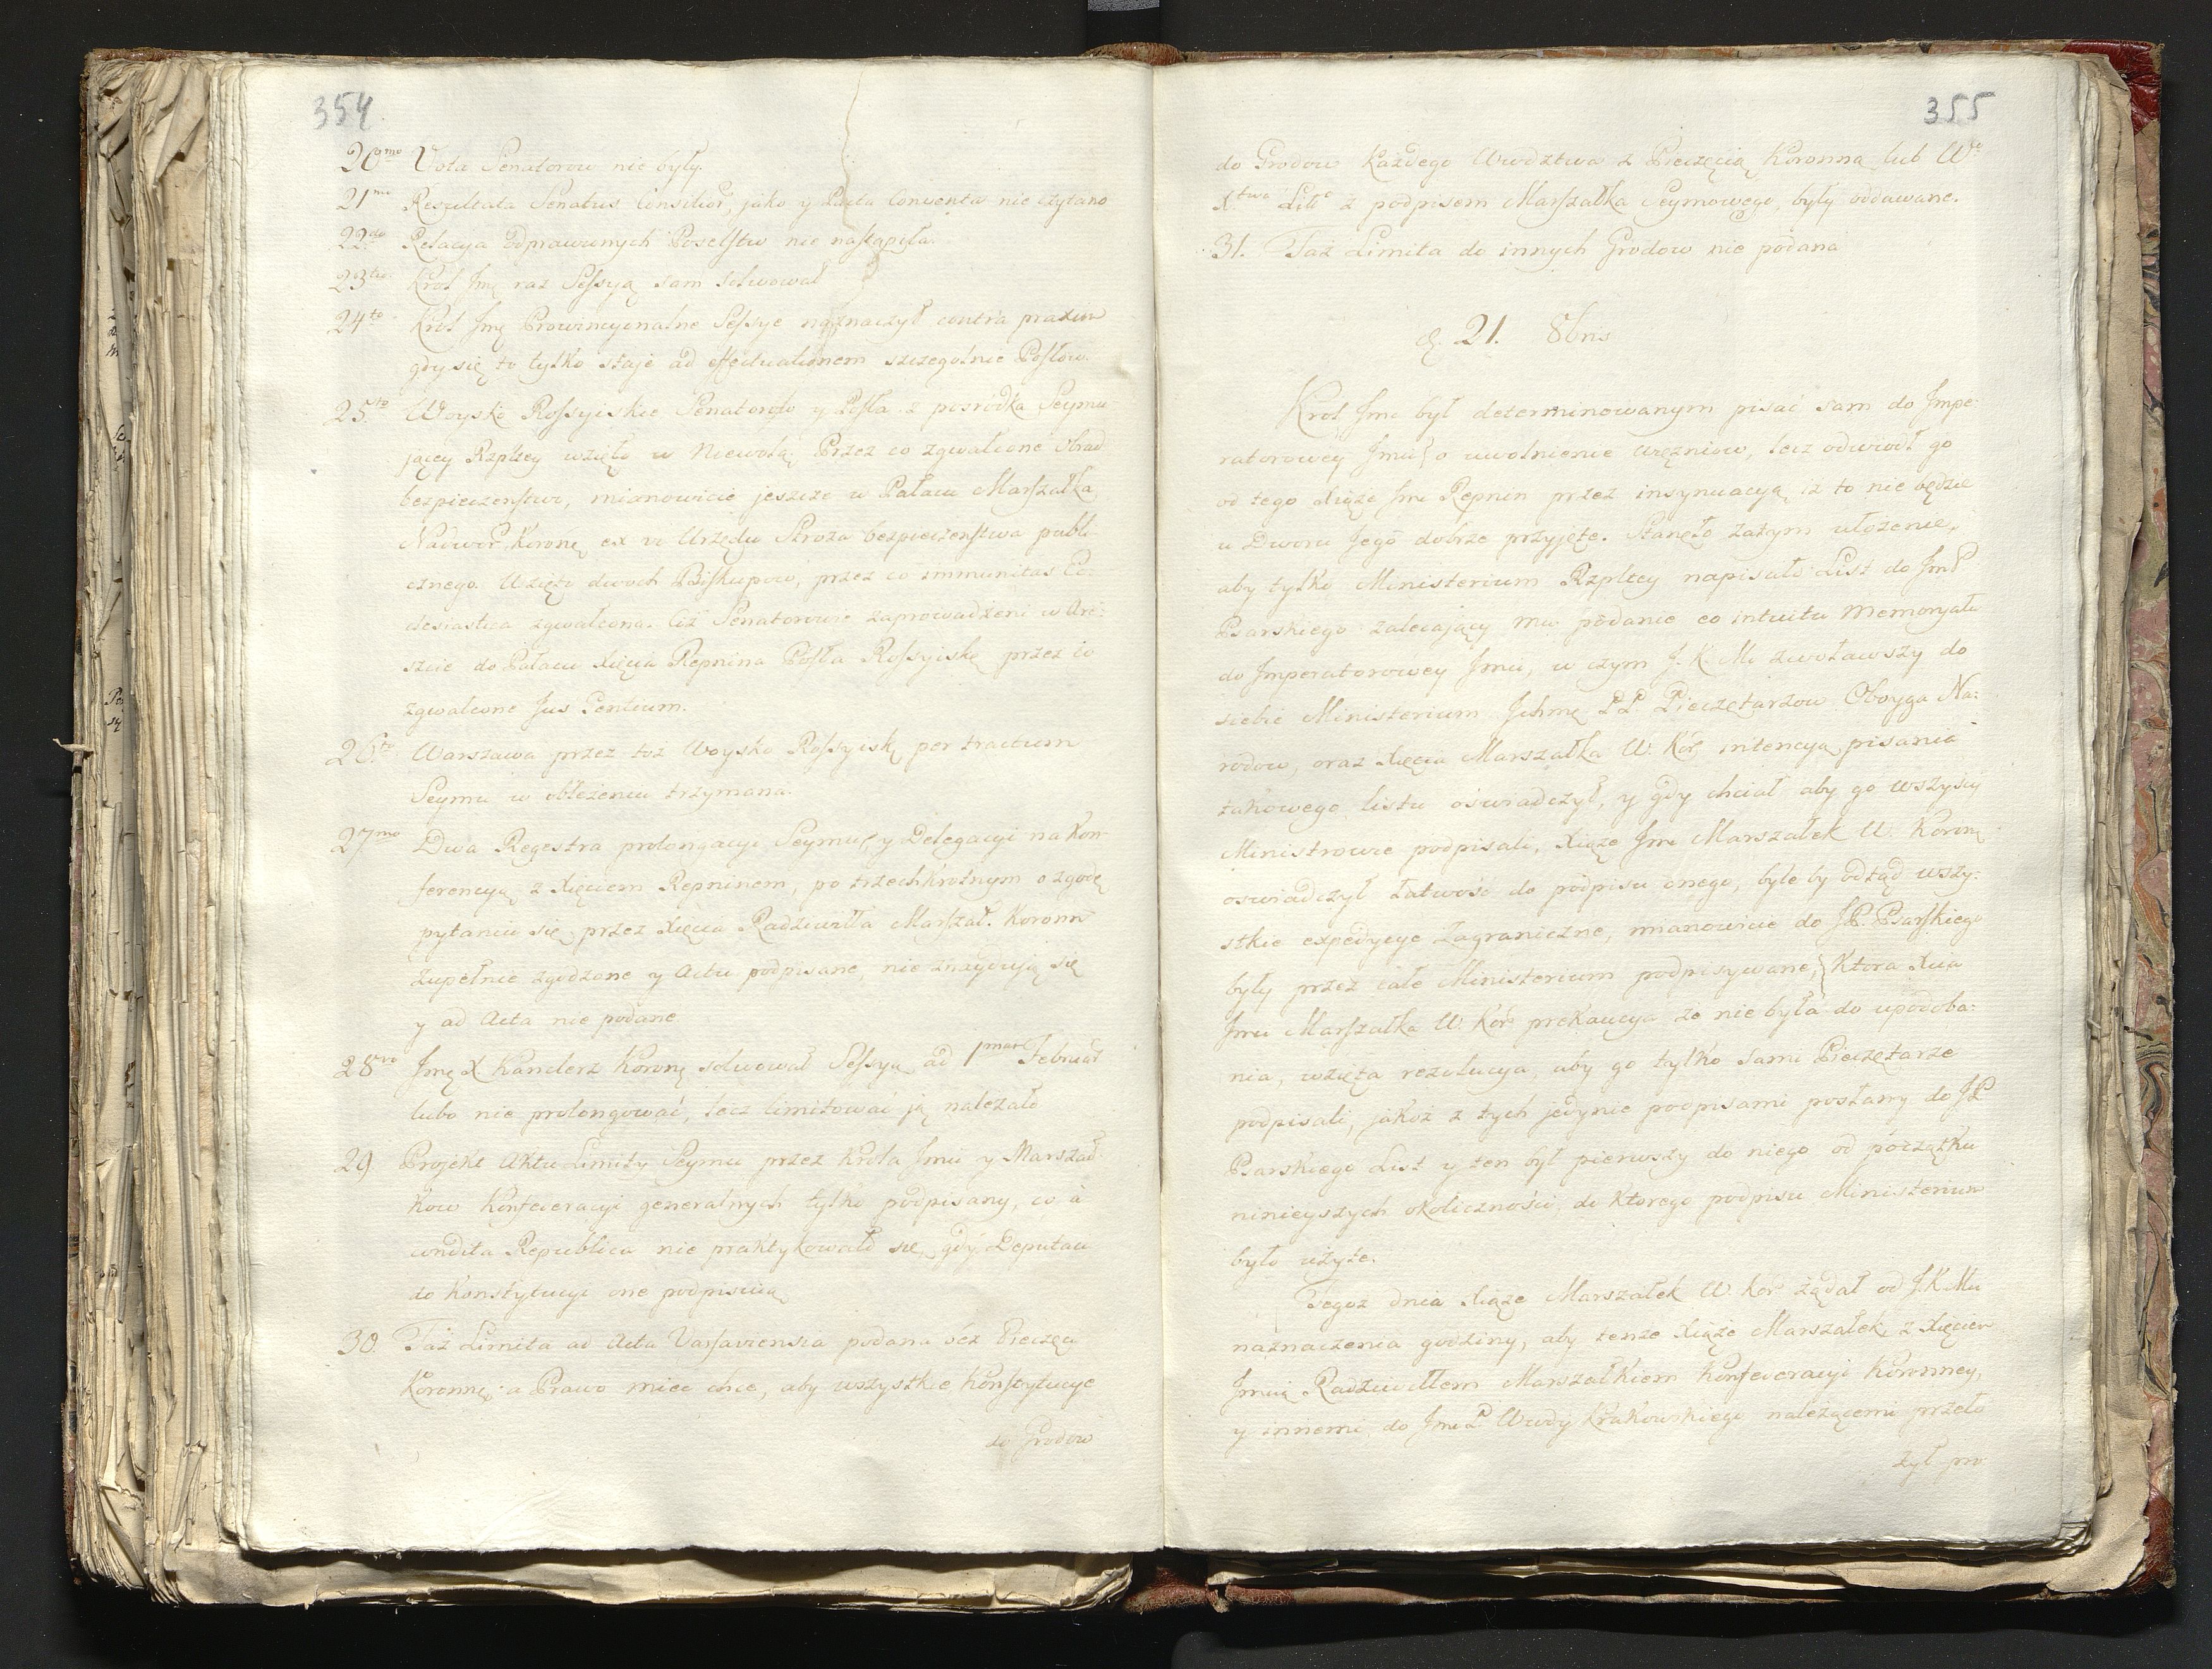 354
20mo Vota Senatorow nie były.
21mo Rezultata Senatus Consilior, jako y Pacta Conventa nie czytano
22do Relacya odprawionych Poselstw nie nastąpiła.
23tio Krol Jmę raz Sessyą sam solwował
24to Krol Jmę Prowincyonalne Sessye naznaczył contra praxim
gdy się to tylko staje ad effectuationem szczegolnie Posłow.
25to Woysko Rossyiskie Senatorow y Posła z posrodka Seymu
jącey Rzpltey wzięło w Niewolą: Przez co zgwałcone Obrad
bezpieczenstwo, mianowicie jeszcze w Pałacu Marszałka
Nadwor. Koronę ex vi Urzędu Stroza bezpieczenstwa publi
cznego. Wzięto dwoch Biskupow, przez co immunitas Ec-
clesiastica zgwałcona. Ciż Senatorowie zaprowadzeni w Are-
szcie do Pałacu Xięcia Repnina Posła Rossyiskę przez co
zgwałcone Jus Gentium.
26to Warszawa przez toz Woysko Rossyiskę per tractum
Seymu w oblężeniu trzymana.
27mo Dwa Regestra prolongacyi Seymu, y Delegacyi na Kon-
ferencyą z Xięciem Repninem, po trzechkrotnym o zgodę
pytaniu się przez Xięcia Radziwiłła Marszał. Koronn
zupełnie zgodzone y Actu podpisane, nie znayduią się
y ad Acta nie podane
28vo Jmę X Kanclerz Koronę solwował Sessyą ad 1mam Februar
lubo nie prolongować, lecz limitować ją należało
29. Projekt Aktu Limity Seymu przez Krola Jmci y Marszał-
kow Konfederacyi generalnych tylko podpisany, co a
condita Republica nie praktykowało się, gdy Deputaci
do Konstytucyi one podpisuią
30. Taż Limita ad Acta Varsaviensia podana bez Pieczęci
Koronnę: a Prawo mieć chce, aby wszystkie Konstytucye
do Grodow
355
do Grodow Każdego Wwdztwa z Pieczęcią Koronną lub Wo
Xtwa Litto z podpisem Marszałka Seymowego, były oddawane.
31. Taż Limita do innych Grodow nie podana
d. 21. 8bris
Krol Jmc był determinowanym pisać sam do Impe-
ratorowey Jmci o uwolnienie więzniow, lecz odwiodł go
od tego Xiąże Jmc Repnin przez insynuacyą, iż to nie będzie
u Dworu Jego dobrze przyjęte. Stanęło zatym ułożenie,
aby tylko Ministerium Rzpltey napisało List do JmP
Psarskiego zalecający mu podanie eo intuitu Memoryału
do Imperatorowey Jmci, w czym J. K. M. zwoławszy do
siebie Ministerium Ichmę PP Pieczętarzow Oboyga Na-
rodow, oraz Xięcia Marszałka W. Kor. intencyą pisania
takowego listu oświadczył, y gdy chciał aby go wszyscy
Ministrowie podpisali, Xiąże Jmc Marszałek W. Koronę
oswiadczył łatwość do podpisu onego, byle by odtąd wszy-
stkie expedycye zagraniczne, mianowicie do JP. Psarskiego
były przez całe Ministerium podpisywane, Ktora Xcia
Jmci Marszałka W. Kor. prekaucya że nie była do upodoba-
nia, wzięta rezolucya, aby go tylko sami Pieczętarze
podpisali, jakoż z tych jedynie podpisami posłany do JP
Psarskiego List y ten był pierwszy do niego od początku
ninieyszych okoliczności, do ktorego podpisu Ministerium
było użyte.
Tegoż dnia Xiąże Marszałek W. Kor. żądał od J.K.Mci
naznaczenia godziny, aby tenże Xiąże Marszałek, z Xięciem
Jmcią Radziwiłłem Marszałkiem Konfederacyi Koronney,
y innemi, do Jmci P. Wwdy Krakowskiego należącemi przeło
żył pro